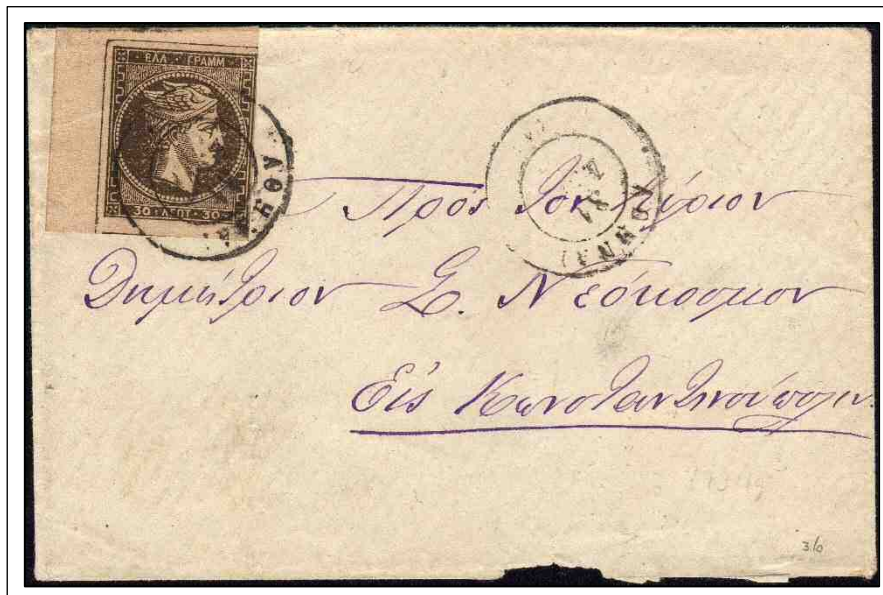 ΕΛΛ · ΓΡΑΜΜ
30 · ΛΕΠΤ · 30
Πρὸς Τὸν Κύριον
Δημήτριον Σ. Νεόκοσμον
Εἰς Κωνσταντινούπολιν.